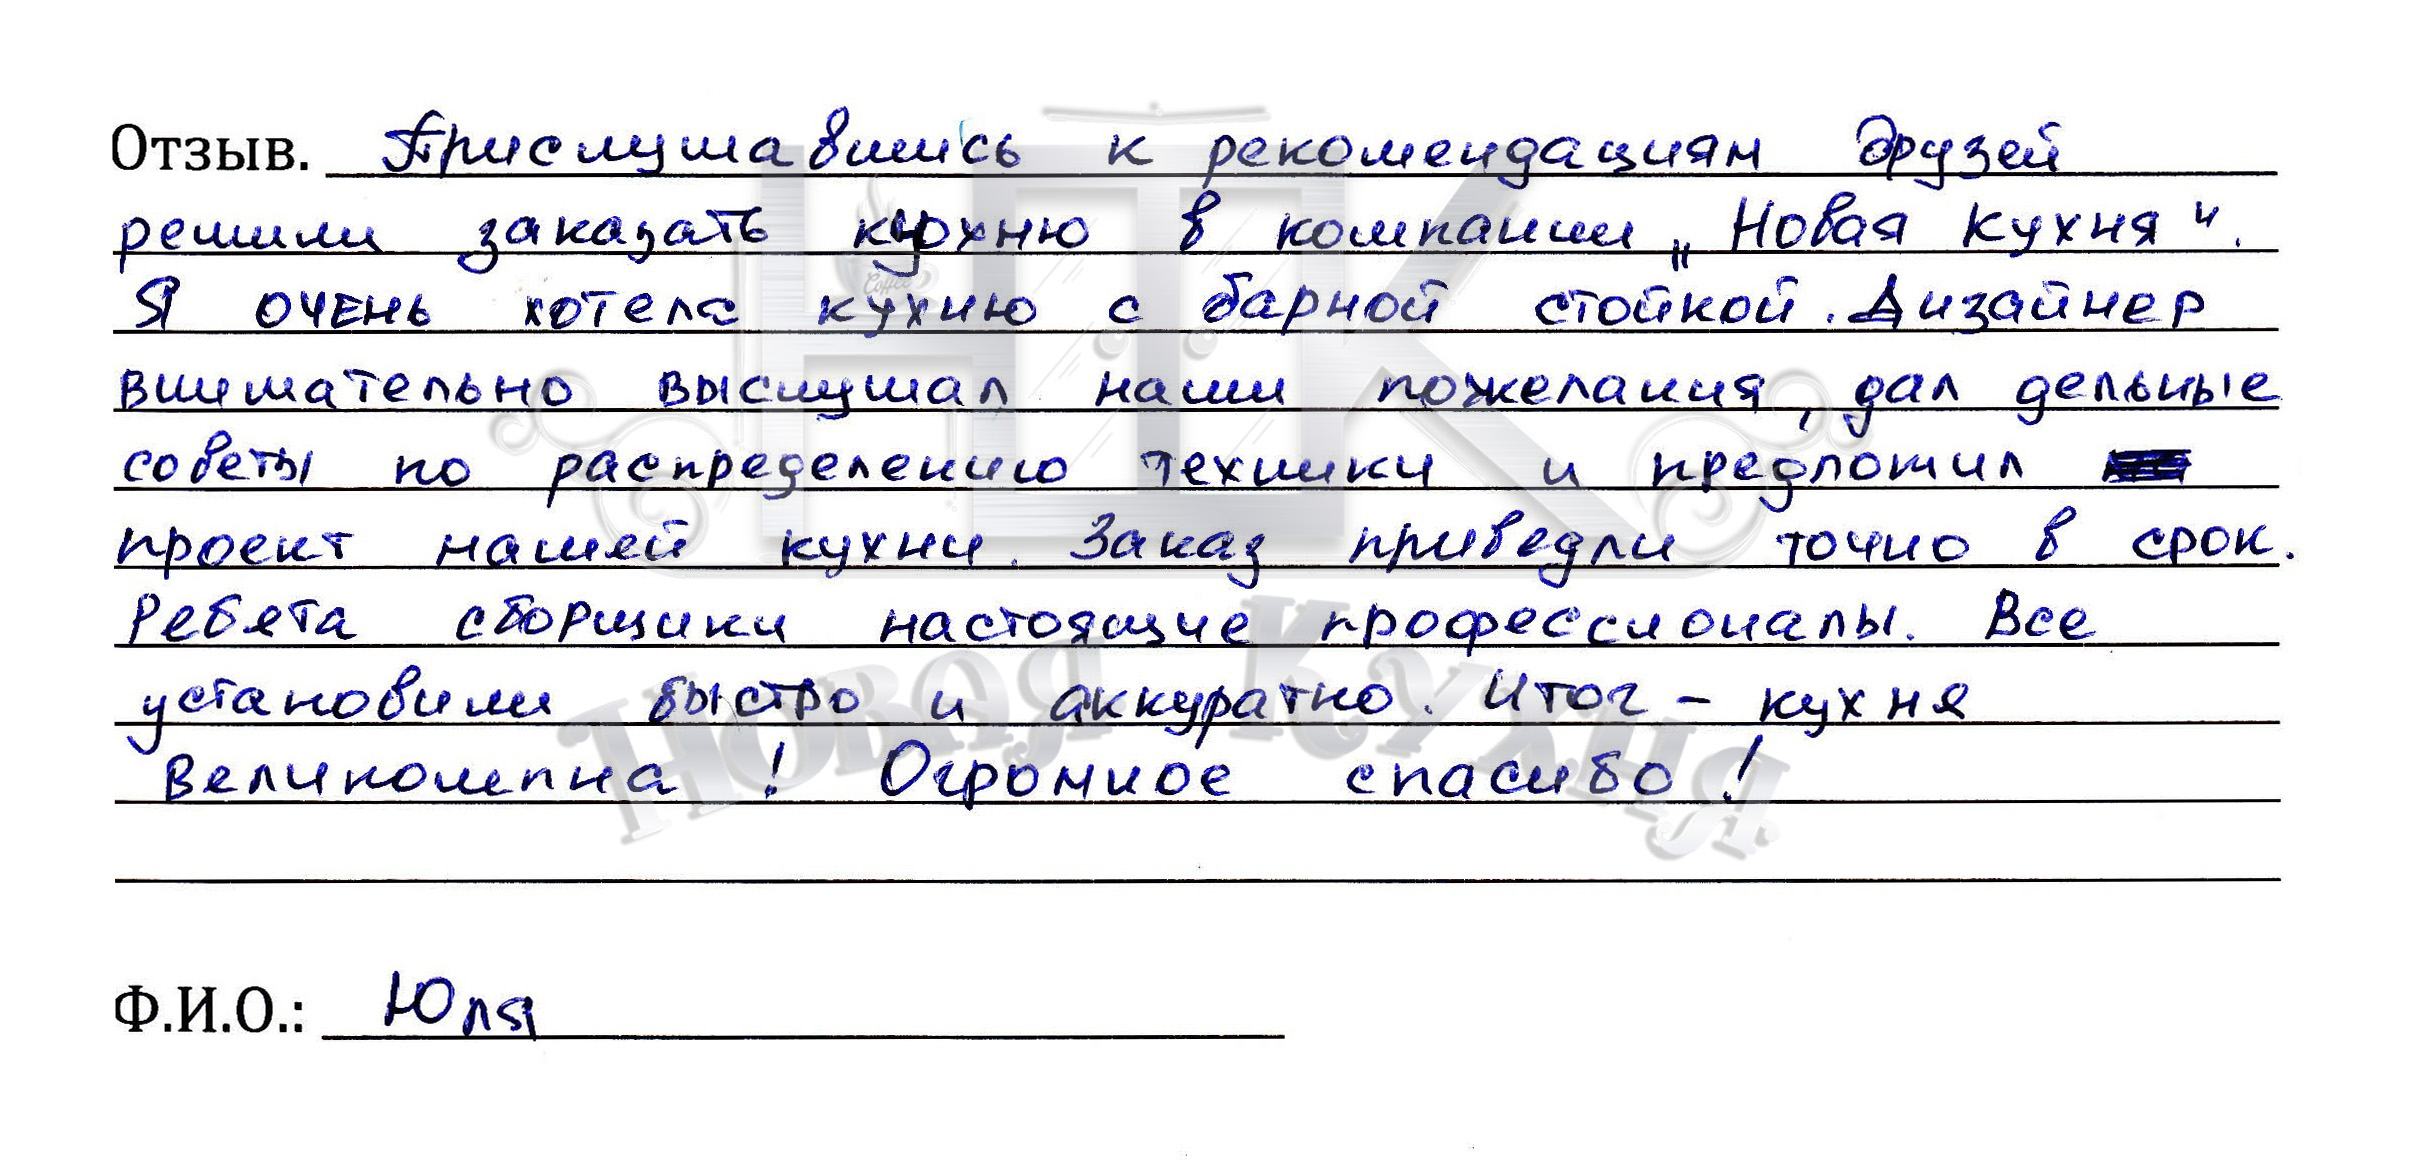 Отзыв. Прислушавшись к рекомендациям друзей
решили заказать кухню в компании „Новая кухня".
Я очень хотела кухню с барной стойкой. Дизайнер
внимательно выслушал наши пожелания, дал дельные
советы по распределению техники и предложил
проект нашей кухни. Заказ привезли точно в срок.
Ребята сборщики настоящие профессионалы. Все
установили быстро и аккуратно. Итог – кухня
великолепна! Огромное спасибо!
Новая Кухня
Ф.И.О.: Юля